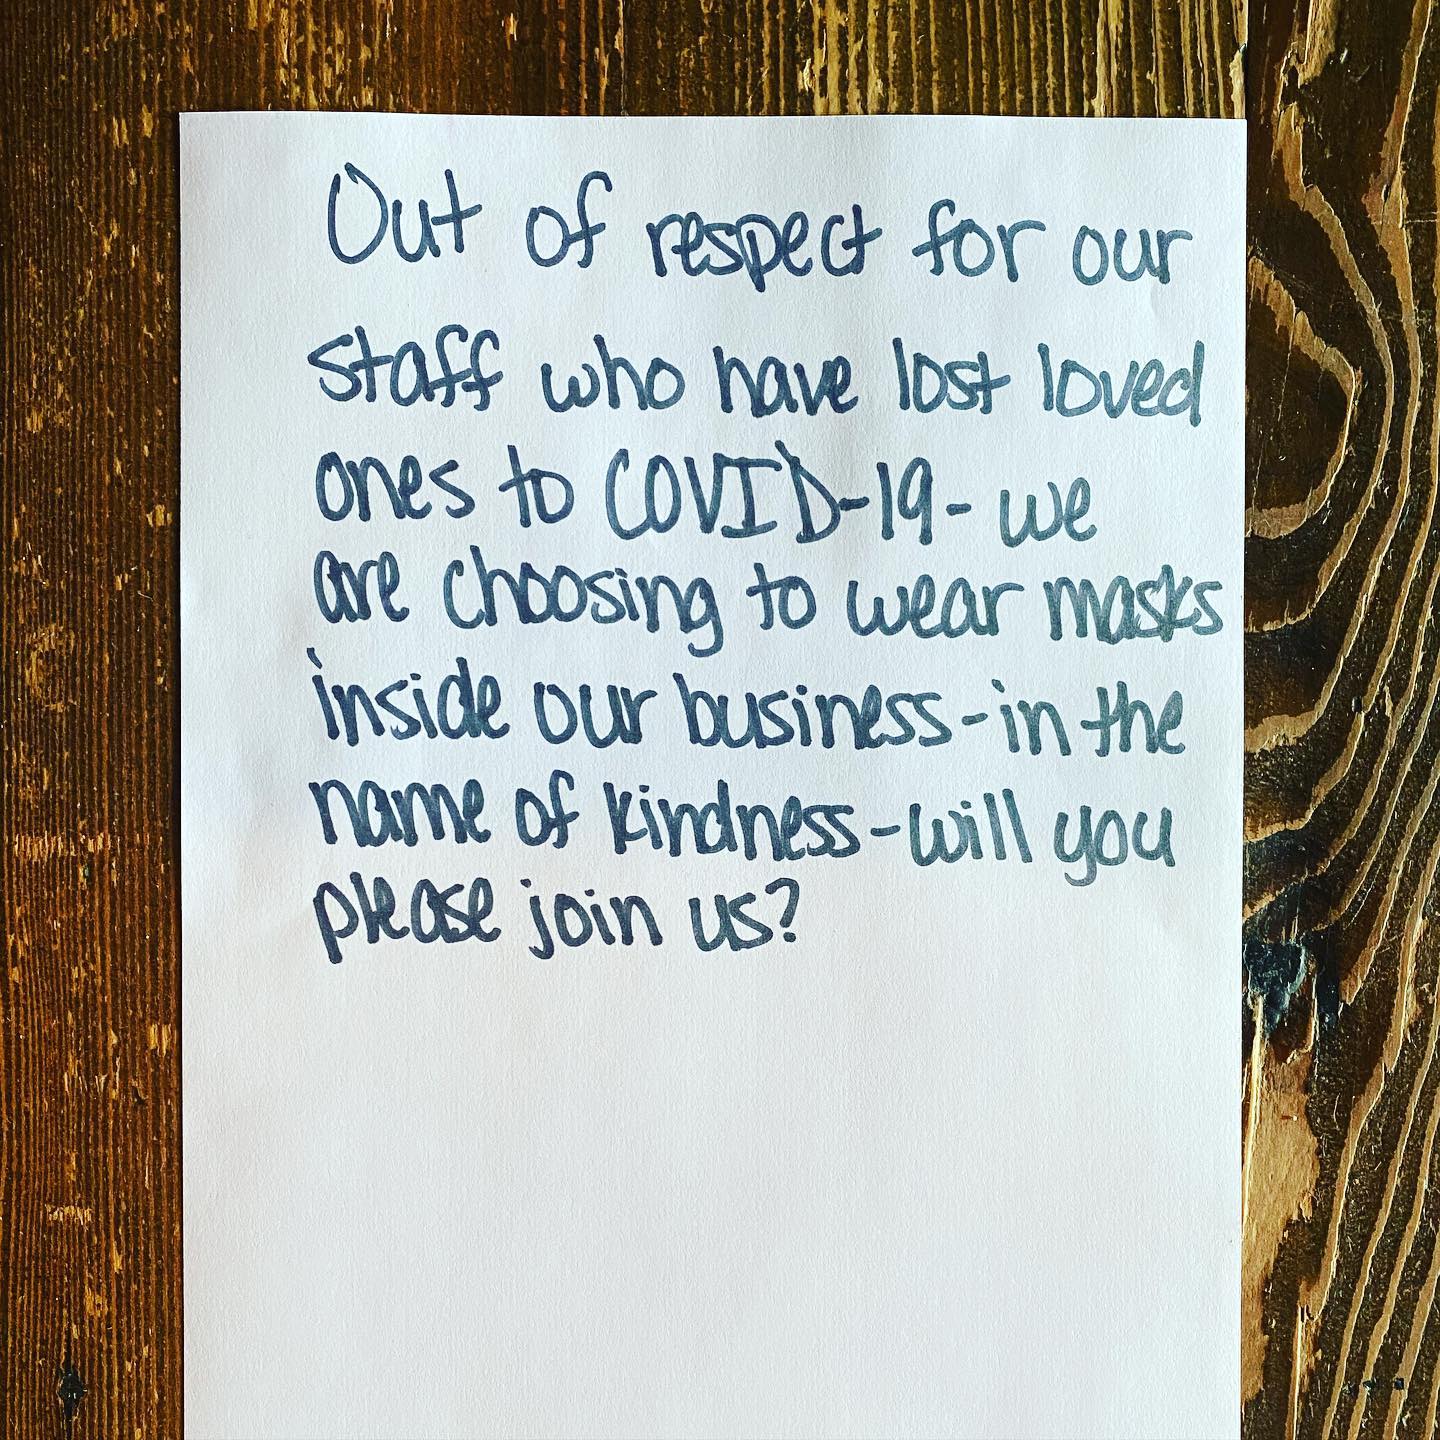 Out of respect for our
staff who have lost loved
ones to COVID-19- we
are choosing to wear masks
inside our business-in the
name of kindness-will you
please join us?